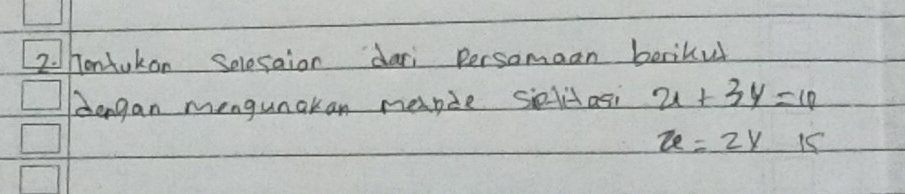 2. Tentukan Selesaian dari Persamaan berikut
dengan mengunakan metode x + 3y = 10
x = 2y 15